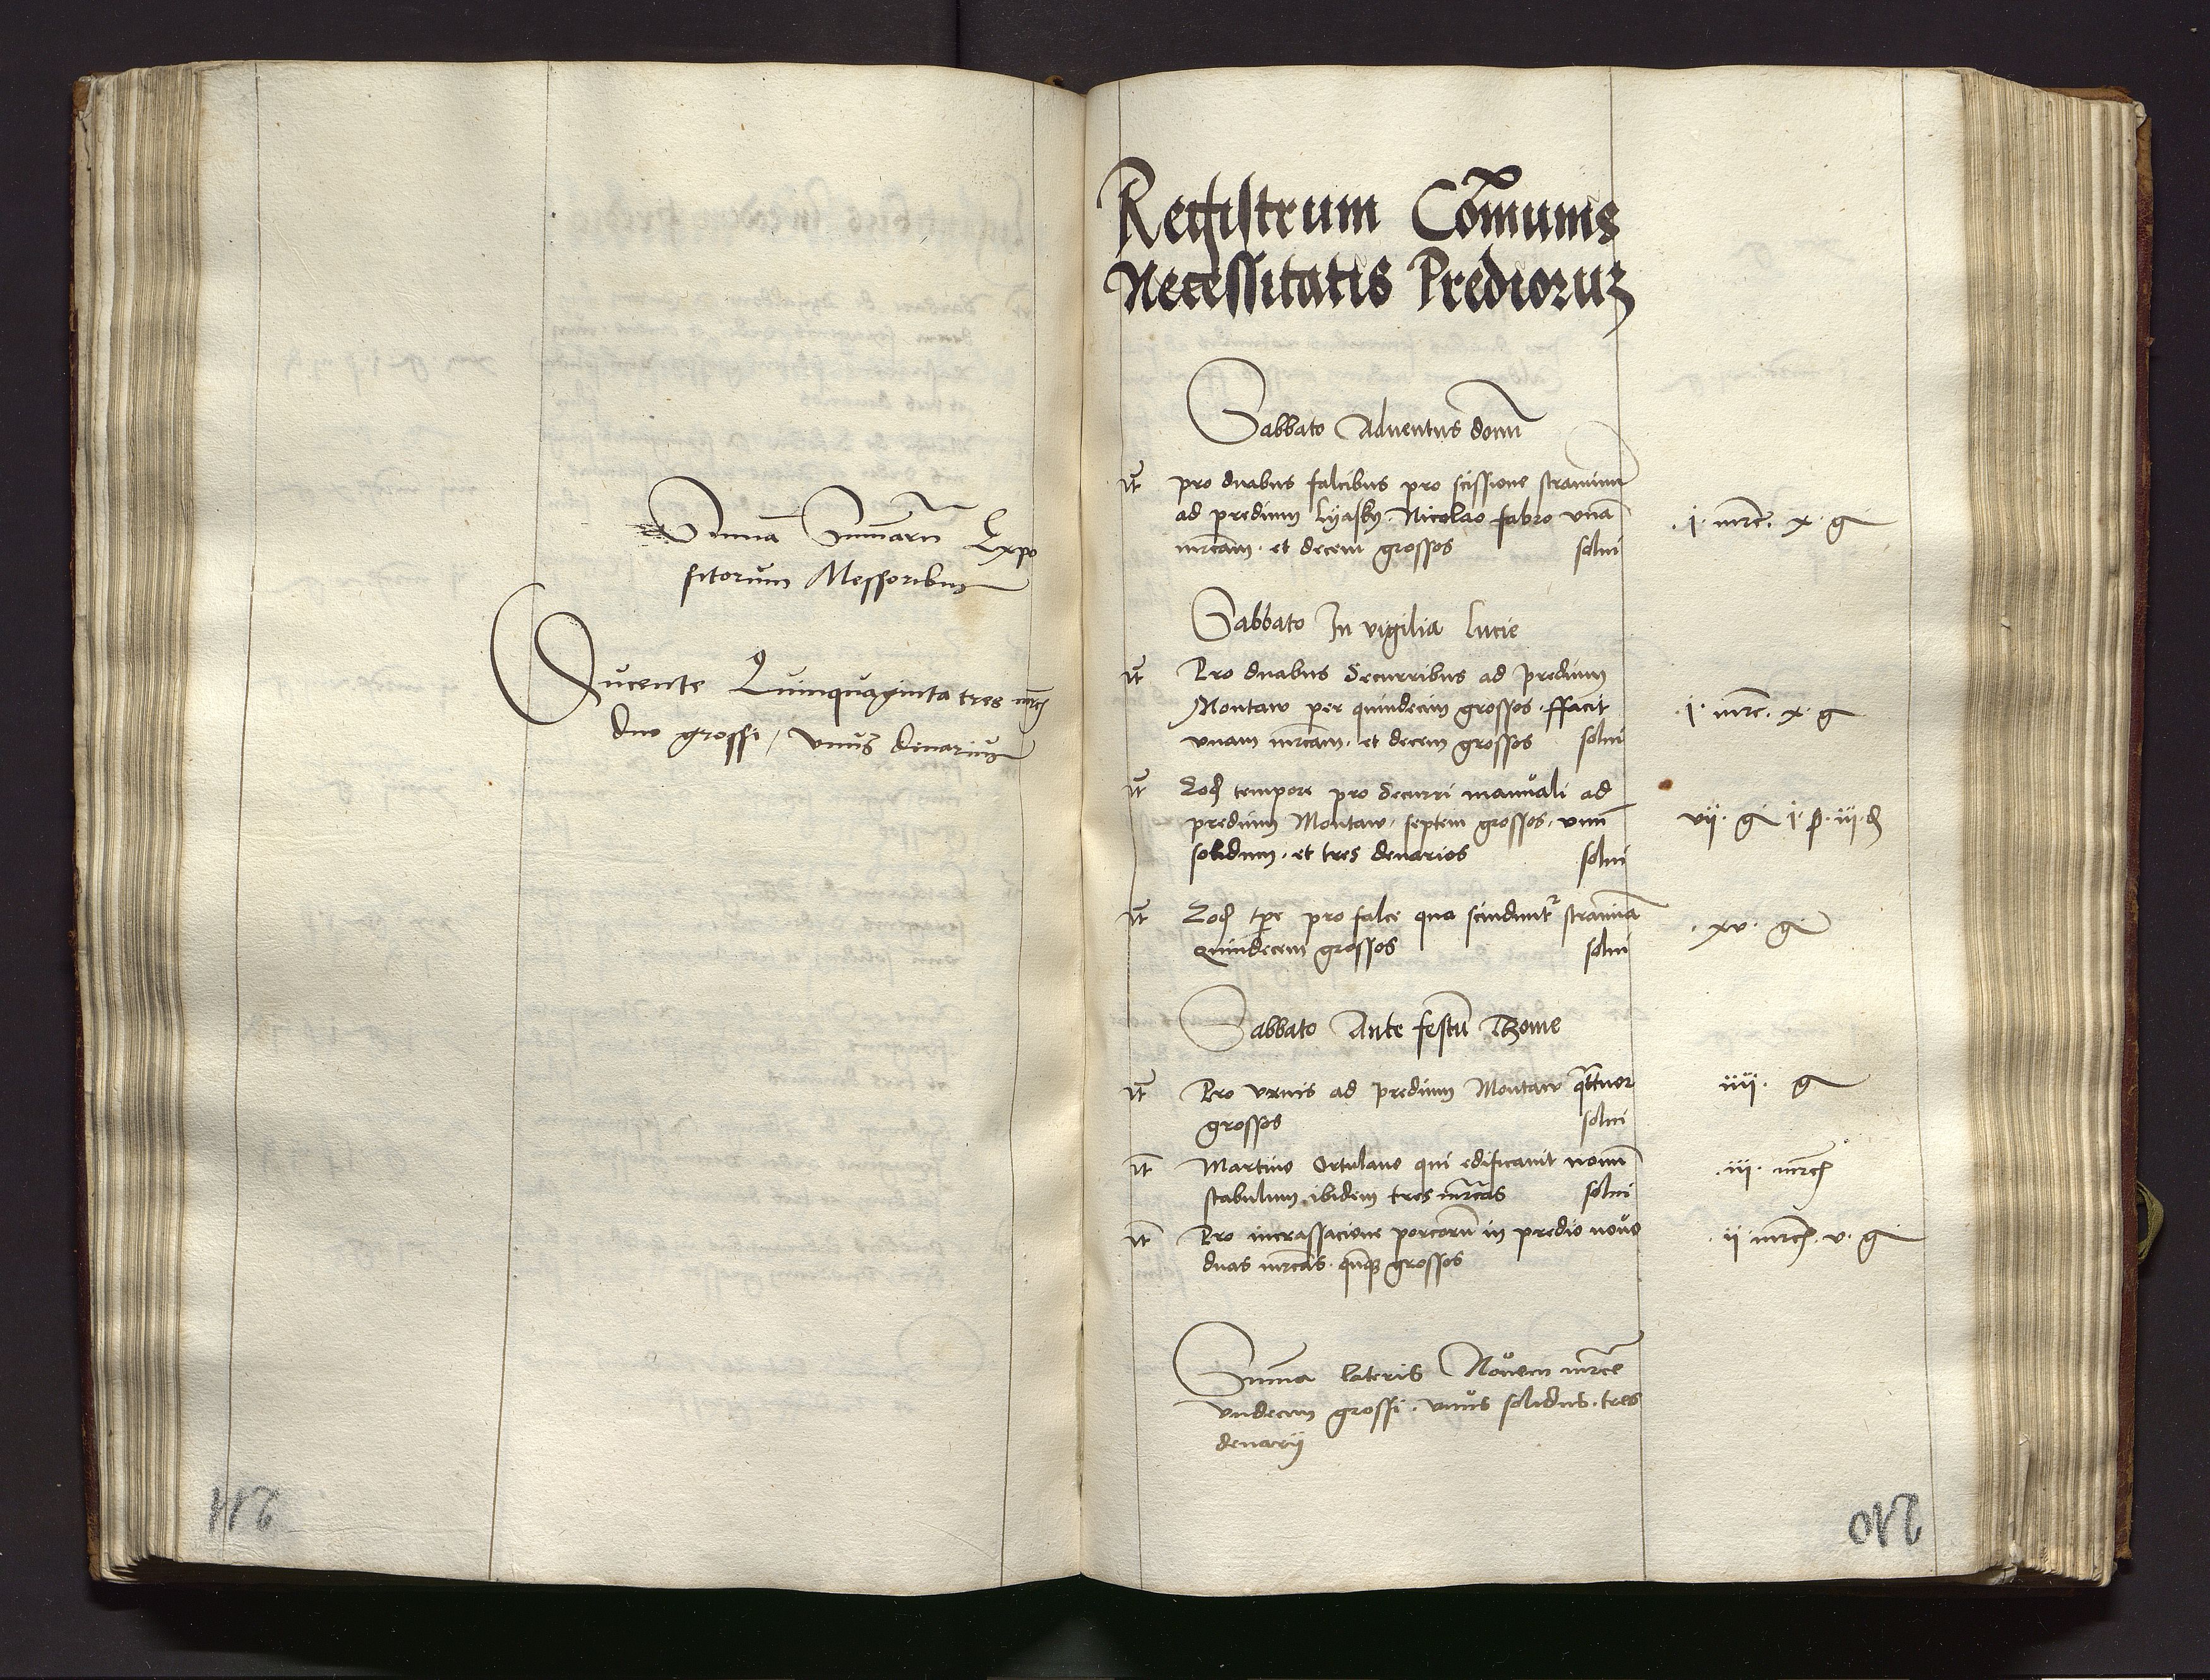 Suma Sumaru Expo
sitorum Messoribus
Ducente Quinquaginta tres mrc
duo grossi, vnus denarius
Registrum Comunis
Necessitatis Predioruz
Sabbato Aduentus domi
it pro duabus falcibus pro scissione straminu
ad predium Lyasky Nicolao fabro vna
mrcam. et decem grossos solui .i. mrc. x. g
Sabbato In vigilia Lucie
it Pro duabus Securribus ad predium
Montaw per quindecim grossos. ffacit
vnam mrcam. et decem grossos solui .i. mrc. x. g
it Eod tempore pro Securri manuali ad
predium Montaw. septem grossos. vnu
solidum. et tres denarios solui vii. g i. s. iii. d
it Eod tpe pro falce qua scindunt stramina
Quindecem grossos solui . xv. g
Sabbato Ante festu Thome
it Pro vrnis ad predium Montaw qttuor
grossos solui iiii. g
it Martino Ortulano qui edificauit nouu
stabulum ibidem tres mrcas solui .iii. mrc
it Pro incrassacione porcoru in predio nouo
duas mrcas. quqz grossos .ii mrc. v. g
Suma lateris Nouem mrce
vndecem grossi. vnus solidus. tres
denarii
211
210